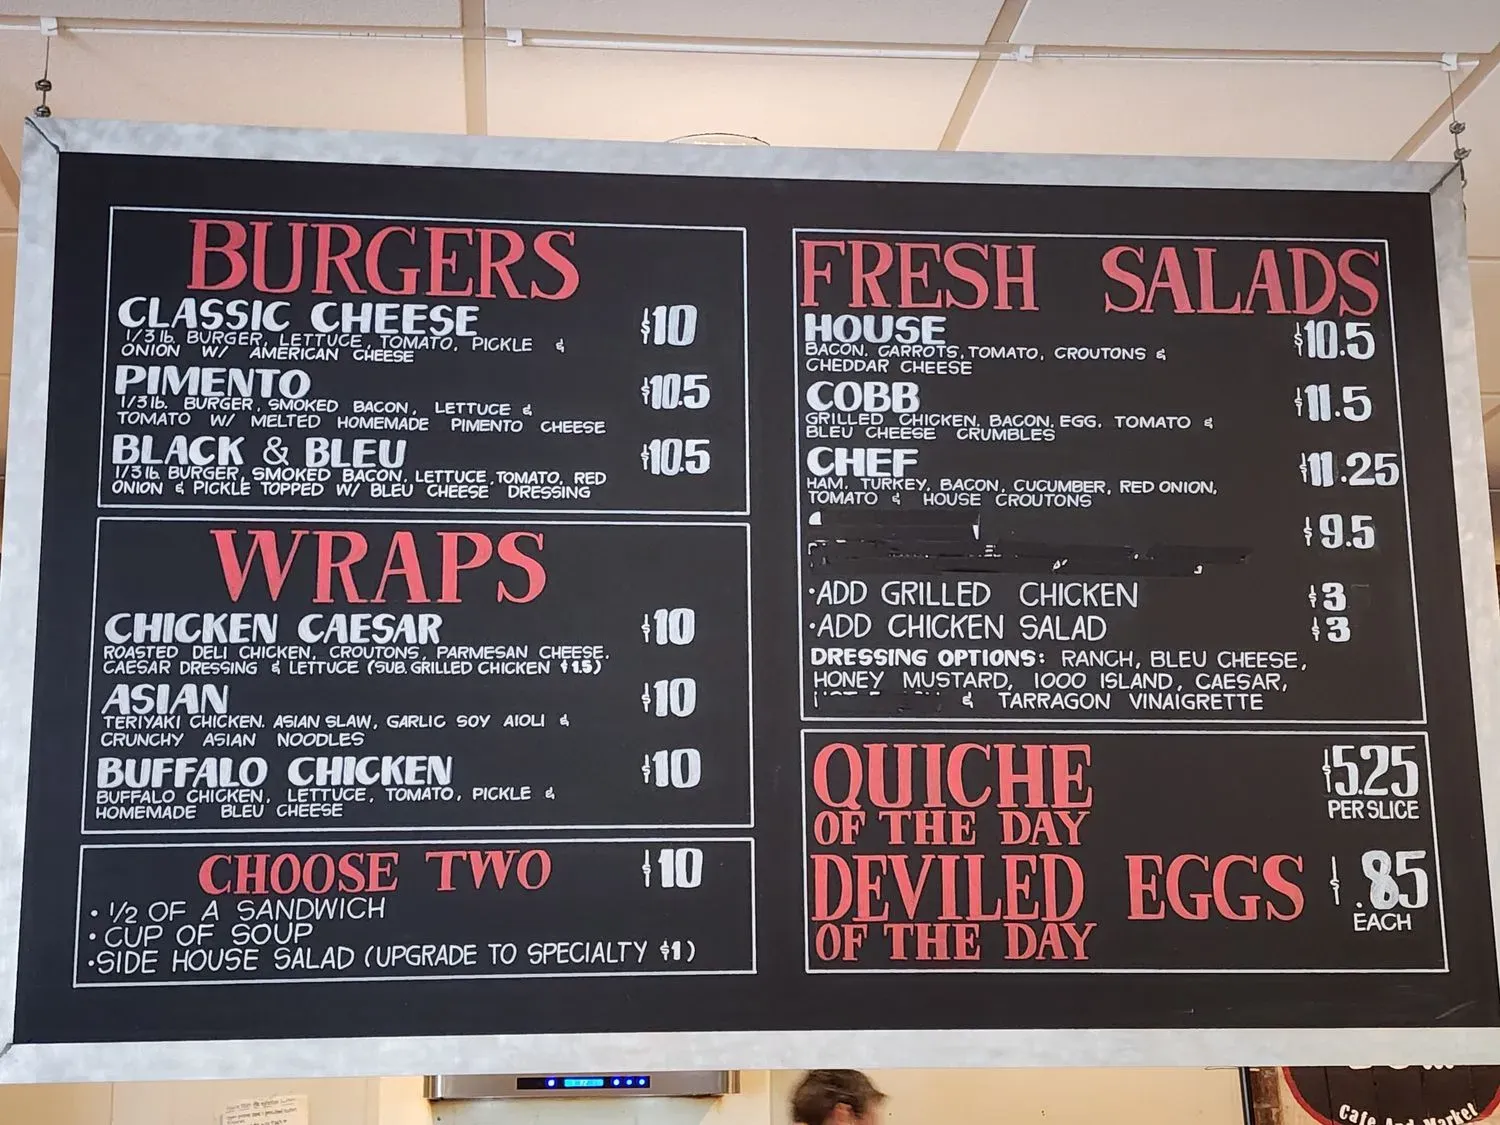 BURGERS
CLASSIC CHEESE $10
1/3 lb. BURGER, LETTUCE, TOMATO, PICKLE &
ONION W/ AMERICAN CHEESE
PIMENTO $10.5
1/3 lb. BURGER, SMOKED BACON, LETTUCE &
TOMATO W/ MELTED HOMEMADE PIMENTO CHEESE
BLACK & BLEU $10.5
1/3 lb. BURGER, SMOKED BACON, LETTUCE, TOMATO, RED
ONION & PICKLE TOPPED W/ BLEU CHEESE DRESSING
WRAPS
CHICKEN CAESAR $10
ROASTED DELI CHICKEN, CROUTONS, PARMESAN CHEESE,
CAESAR DRESSING & LETTUCE (SUB. GRILLED CHICKEN $1.5)
ASIAN $10
TERIYAKI CHICKEN, ASIAN SLAW, GARLIC SOY AIOLI &
CRUNCHY ASIAN NOODLES
BUFFALO CHICKEN $10
BUFFALO CHICKEN, LETTUCE, TOMATO, PICKLE &
HOMEMADE BLEU CHEESE
CHOOSE TWO $10
• 1/2 OF A SANDWICH
• CUP OF SOUP
• SIDE HOUSE SALAD (UPGRADE TO SPECIALTY $1)
FRESH SALADS
HOUSE $10.5
BACON, CARROTS, TOMATO, CROUTONS &
CHEDDAR CHEESE
COBB $11.5
GRILLED CHICKEN, BACON, EGG, TOMATO &
BLEU CHEESE CRUMBLES
CHEF $11.25
HAM, TURKEY, BACON, CUCUMBER, RED ONION,
TOMATO & HOUSE CROUTONS
$9.5
• ADD GRILLED CHICKEN $3
• ADD CHICKEN SALAD $3
DRESSING OPTIONS: RANCH, BLEU CHEESE,
HONEY MUSTARD, 1000 ISLAND, CAESAR,
& TARRAGON VINAIGRETTE
QUICHE $5.25
OF THE DAY PER SLICE
DEVILED EGGS $.85
OF THE DAY EACH
Cafe And Market